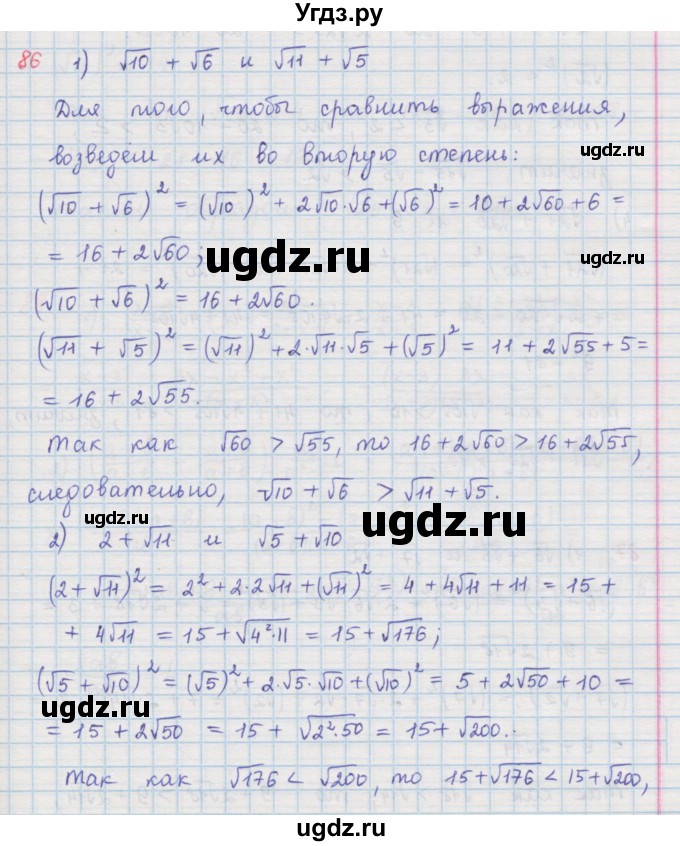 Угдз.ру
86 1) √10 + √6 и √11 + √5
Для того, чтобы сравнить выражения,
возведем их во вторую степень:
ugdz.ru
(√10 + √6)² = (√10)² + 2√10·√6 + (√6)² = 10 + 2√60 + 6 =
= 16 + 2√60;
ugdz.ru
ugdz.ru
(√10 + √6)² = 16 + 2√60.
(√11 + √5)² = (√11)² + 2·√11·√5 + (√5)² = 11 + 2√55 + 5 =
= 16 + 2√55.
ugdz.ru
Так как √60 > √55, то 16 + 2√60 > 16 + 2√55,
следовательно, √10 + √6 > √11 + √5.
ugdz.ru
ugdz.ru
2) 2 + √11 и √5 + √10
(2 + √11)² = 2² + 2·2√11 + (√11)² = 4 + 4√11 + 11 = 15 +
+ 4√11 = 15 + √4²·11 = 15 + √176;
(√5 + √10)² = (√5)² + 2·√5·√10 + (√10)² = 5 + 2√50 + 10 =
ugdz.ru
ugdz.ru
= 15 + 2√50 = 15 + √2²·50 = 15 + √200.
Так как √176 < √200, то 15 + √176 < 15 + √200,
ugdz.ru